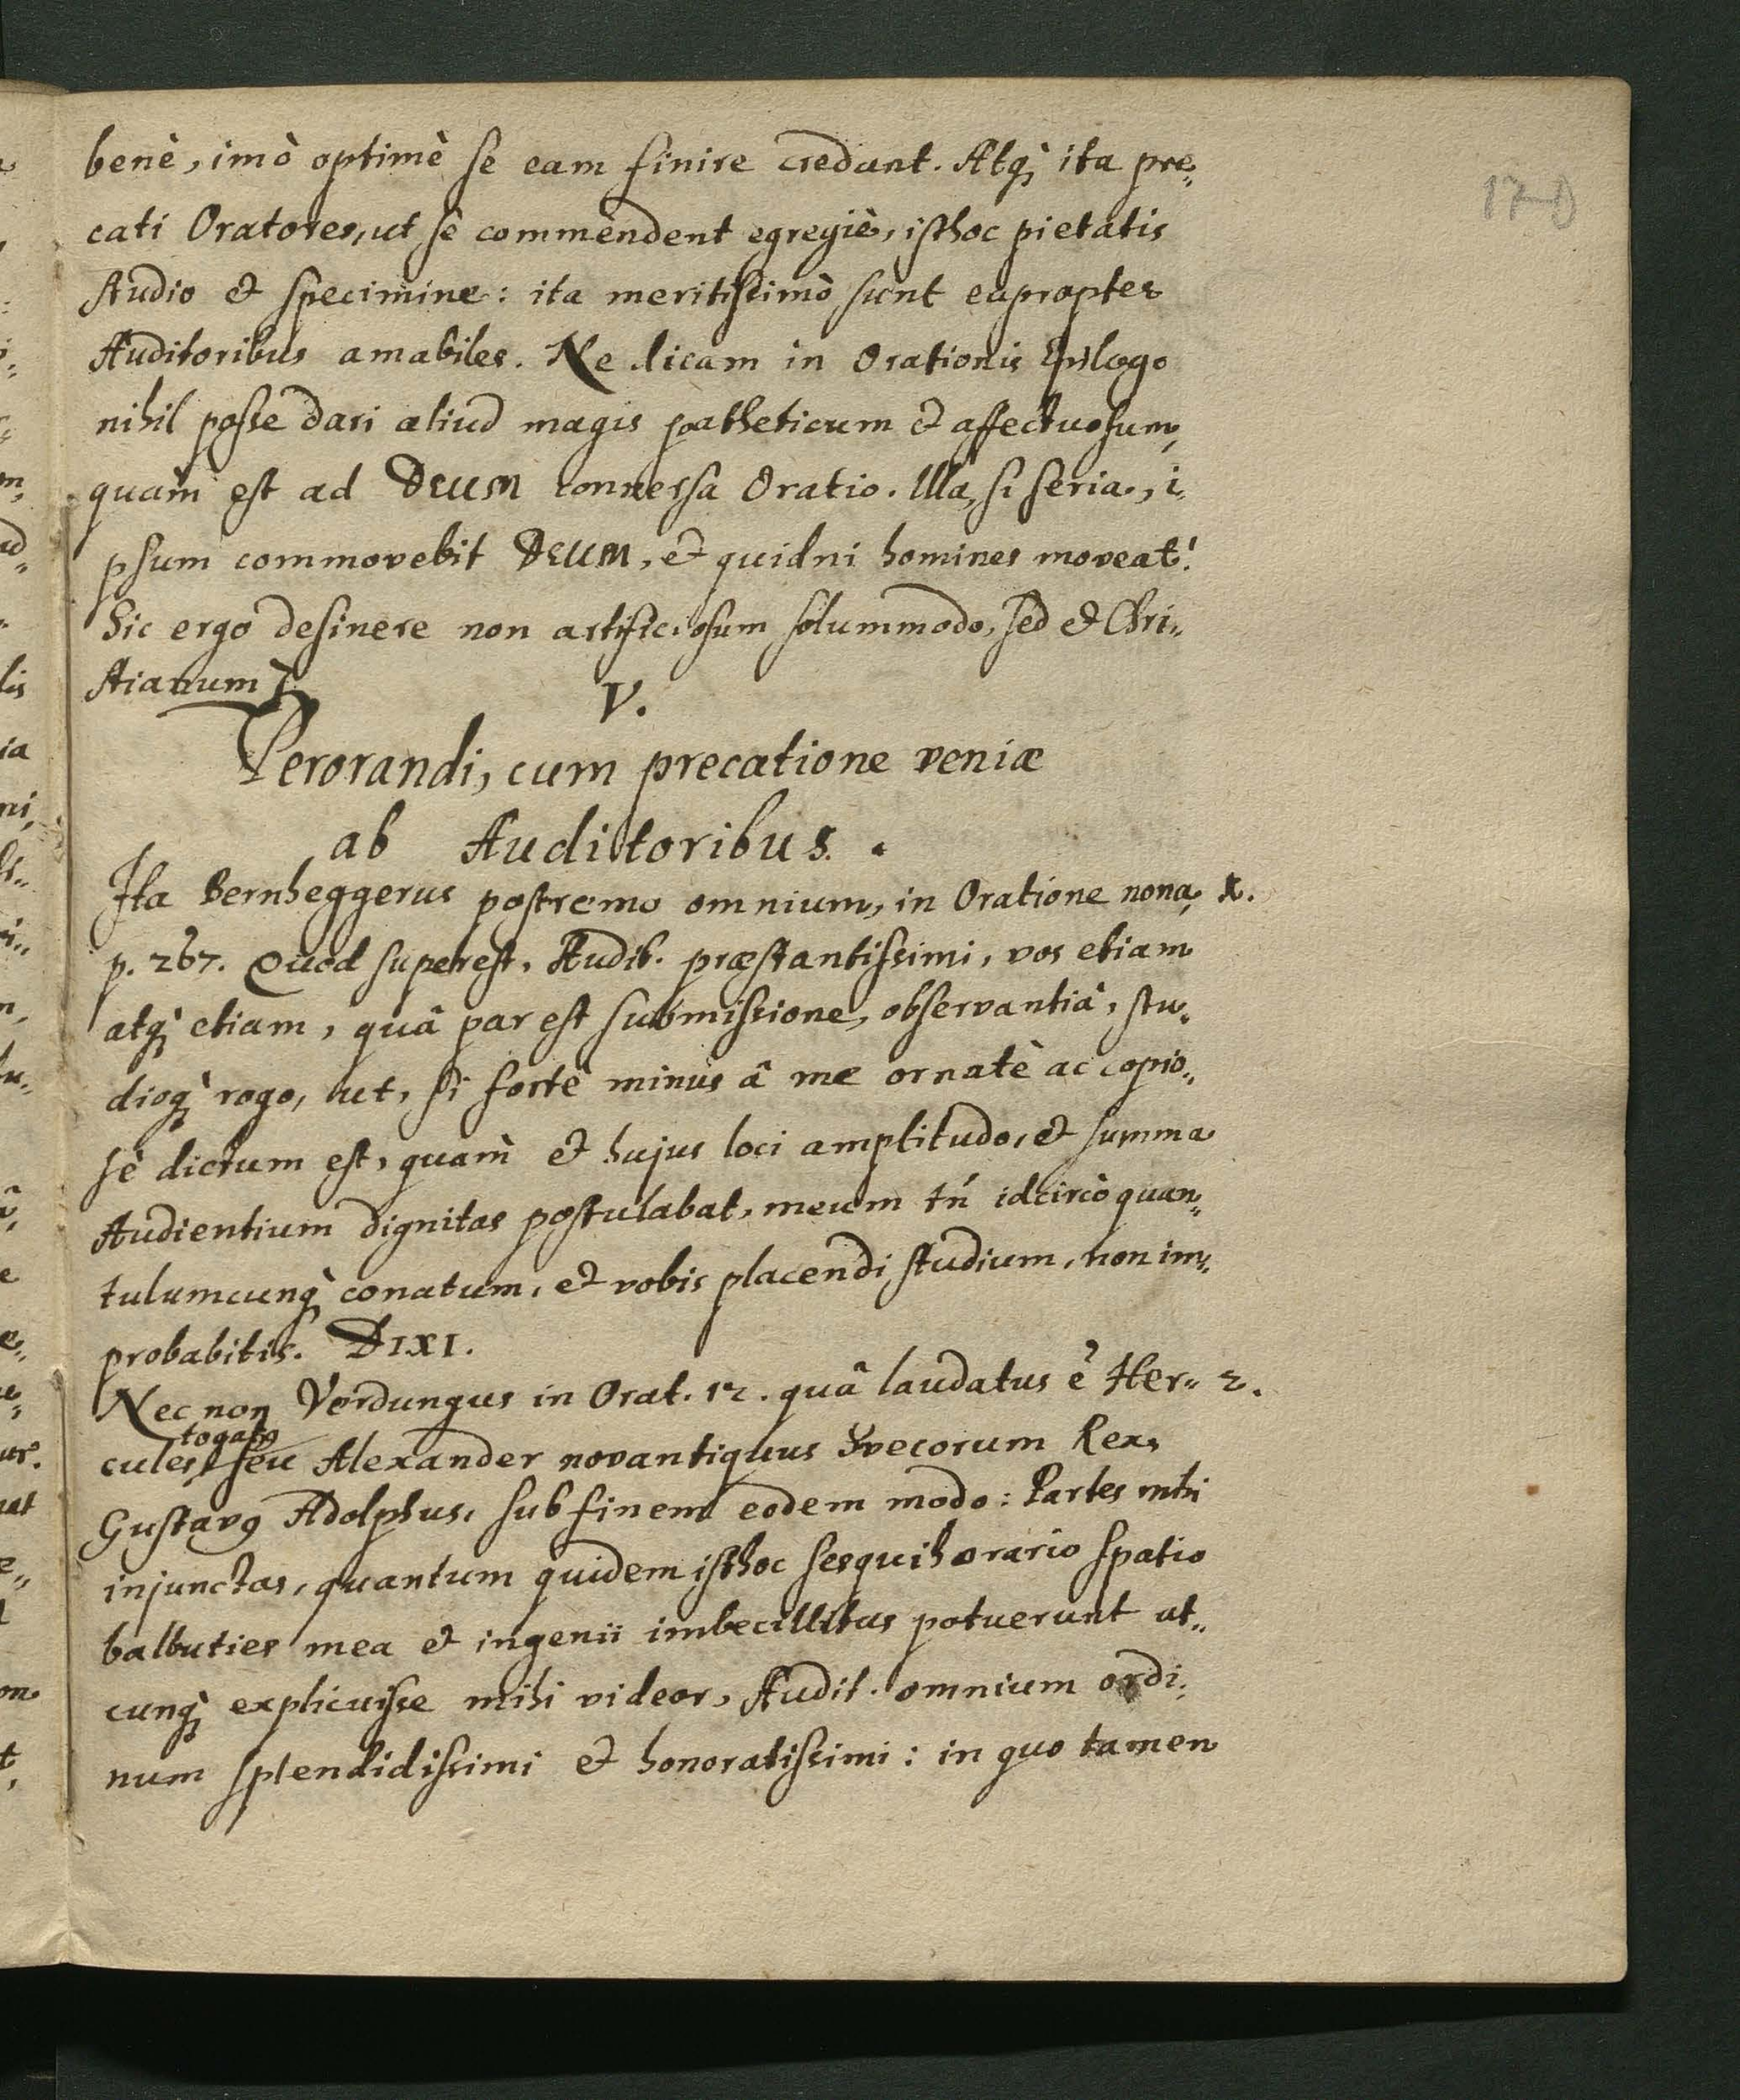 benè, imò optimè se eam finire credunt. Atq; ita pre„
cati Oratores, ut se commendent egregiè, isthoc pietatis
studio & specimine: ita meritissimò sunt eapropter
Auditoribus amabiles. Ne dicam in Orationis Epilogo
nihil posse dari aliud magis patheticum & affectuosum,
quàm est ad DEUM conversa Oratio. Illa, si seria, i„
psum commovebit DEUM, & quidni homines moveat!
Sic ergo desinere non artificiosum solummodo, sed & Chri„
stianum ē.
V.
Perorandi, cum precatione veniæ
ab Auditoribus.
Ita Bernheggerus postremo omnium, in Oratione nona, 1.
p. 267. Quod superest, Audit. præstantissimi, vos etiam
atq; etiam, quâ par est submissione, observantiâ, stu„
dioq; rogo, ut, si fortè minus â me ornatè ac copio„
sè dictum est, quàm & hujus loci amplitudo, et summa
Audientium dignitas postulabat, meum tń idcircò quan„
tulumcunq; conatum, et vobis placendi studium, non im„
probabitis. DIXI.
Nec non Verdungus in Orat. 12. quâ laudatus ē Her„ 2.
togatq
cules, seu Alexander novantiquus Svecorum Rex,
Gustavq Adolphus, sub finem eodem modo: Partes mihi
injunctas, quantum quidem isthoc sesquihorario spatio
balbuties mea & ingenii imbecillitas potuerunt ut„
cunq; explicuisse mihi videor, Audit. omnium ordi„
num splendidissimi & honoratissimi: in quo tamen